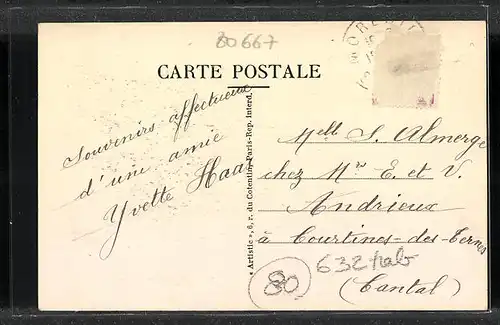 80667
CARTE POSTALE
Souvenirs affectueux
d'une amie
Yvette Haas
« Artistic », 6, r. du Cotentin, Paris-Rep. Interd.
Melle S. Almerge
chez Mr E. et V.
Andrieux
à Courtines-des-Ternes
(Cantal)
80
632 hab